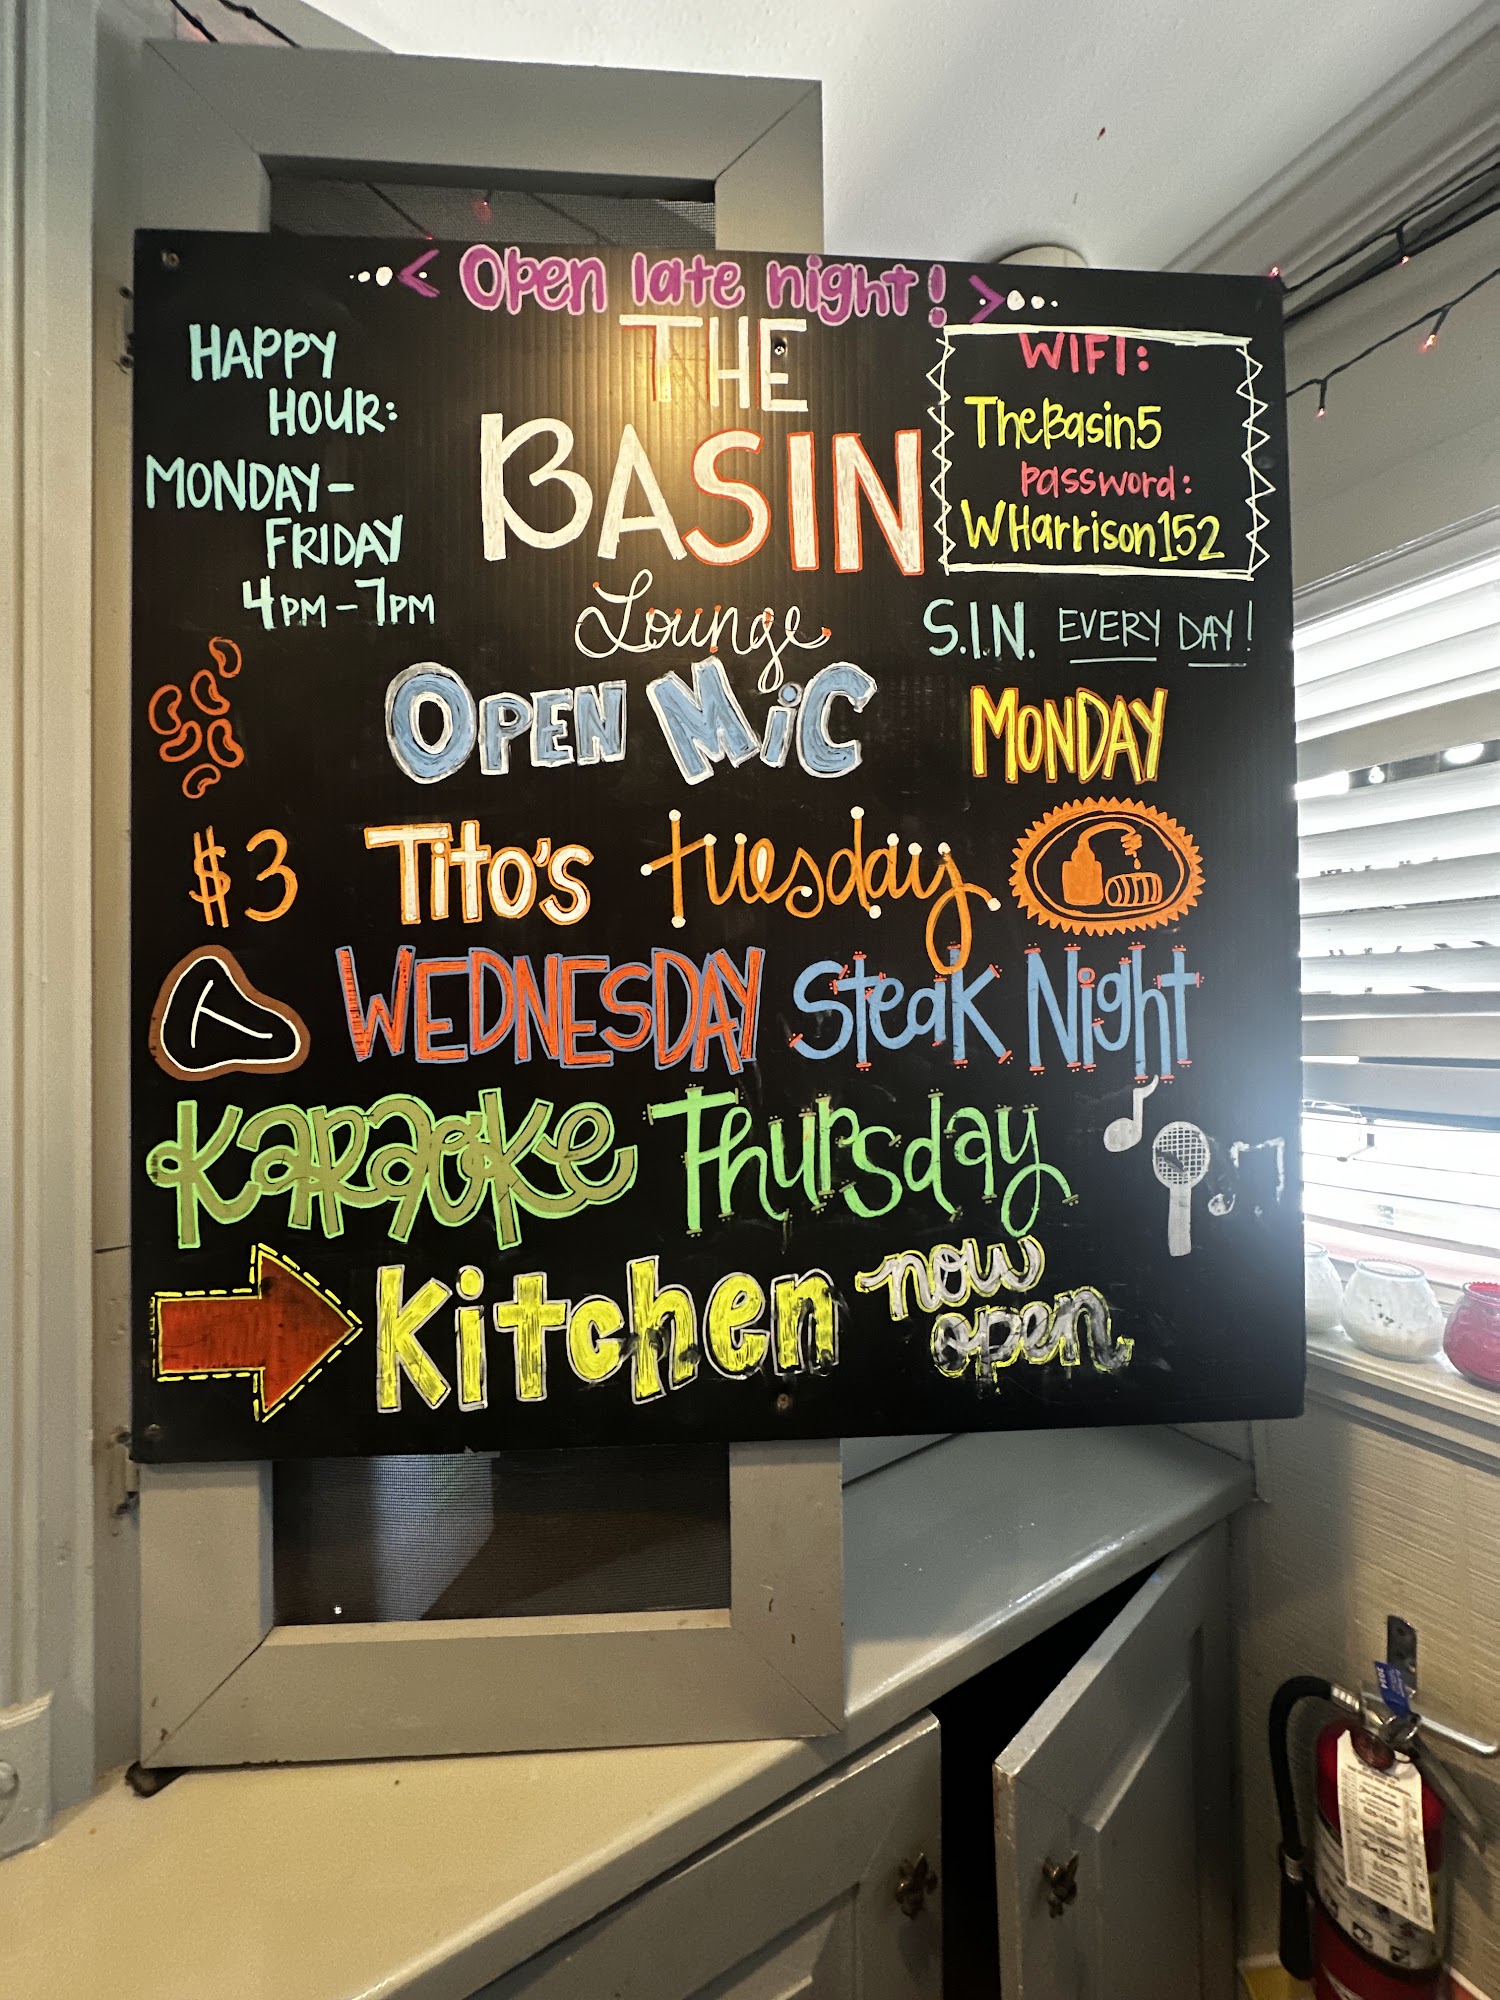 < Open late night! >
THE
BASIN
Lounge
HAPPY
HOUR:
MONDAY-
FRIDAY
4PM-7PM
WIFI:
TheBasin5
Password:
WHarrison152
S.I.N. EVERY DAY!
OPEN MiC MONDAY
$3 Tito's tuesday
WEDNESDAY Steak Night
Karaoke Thursday
Kitchen now
open